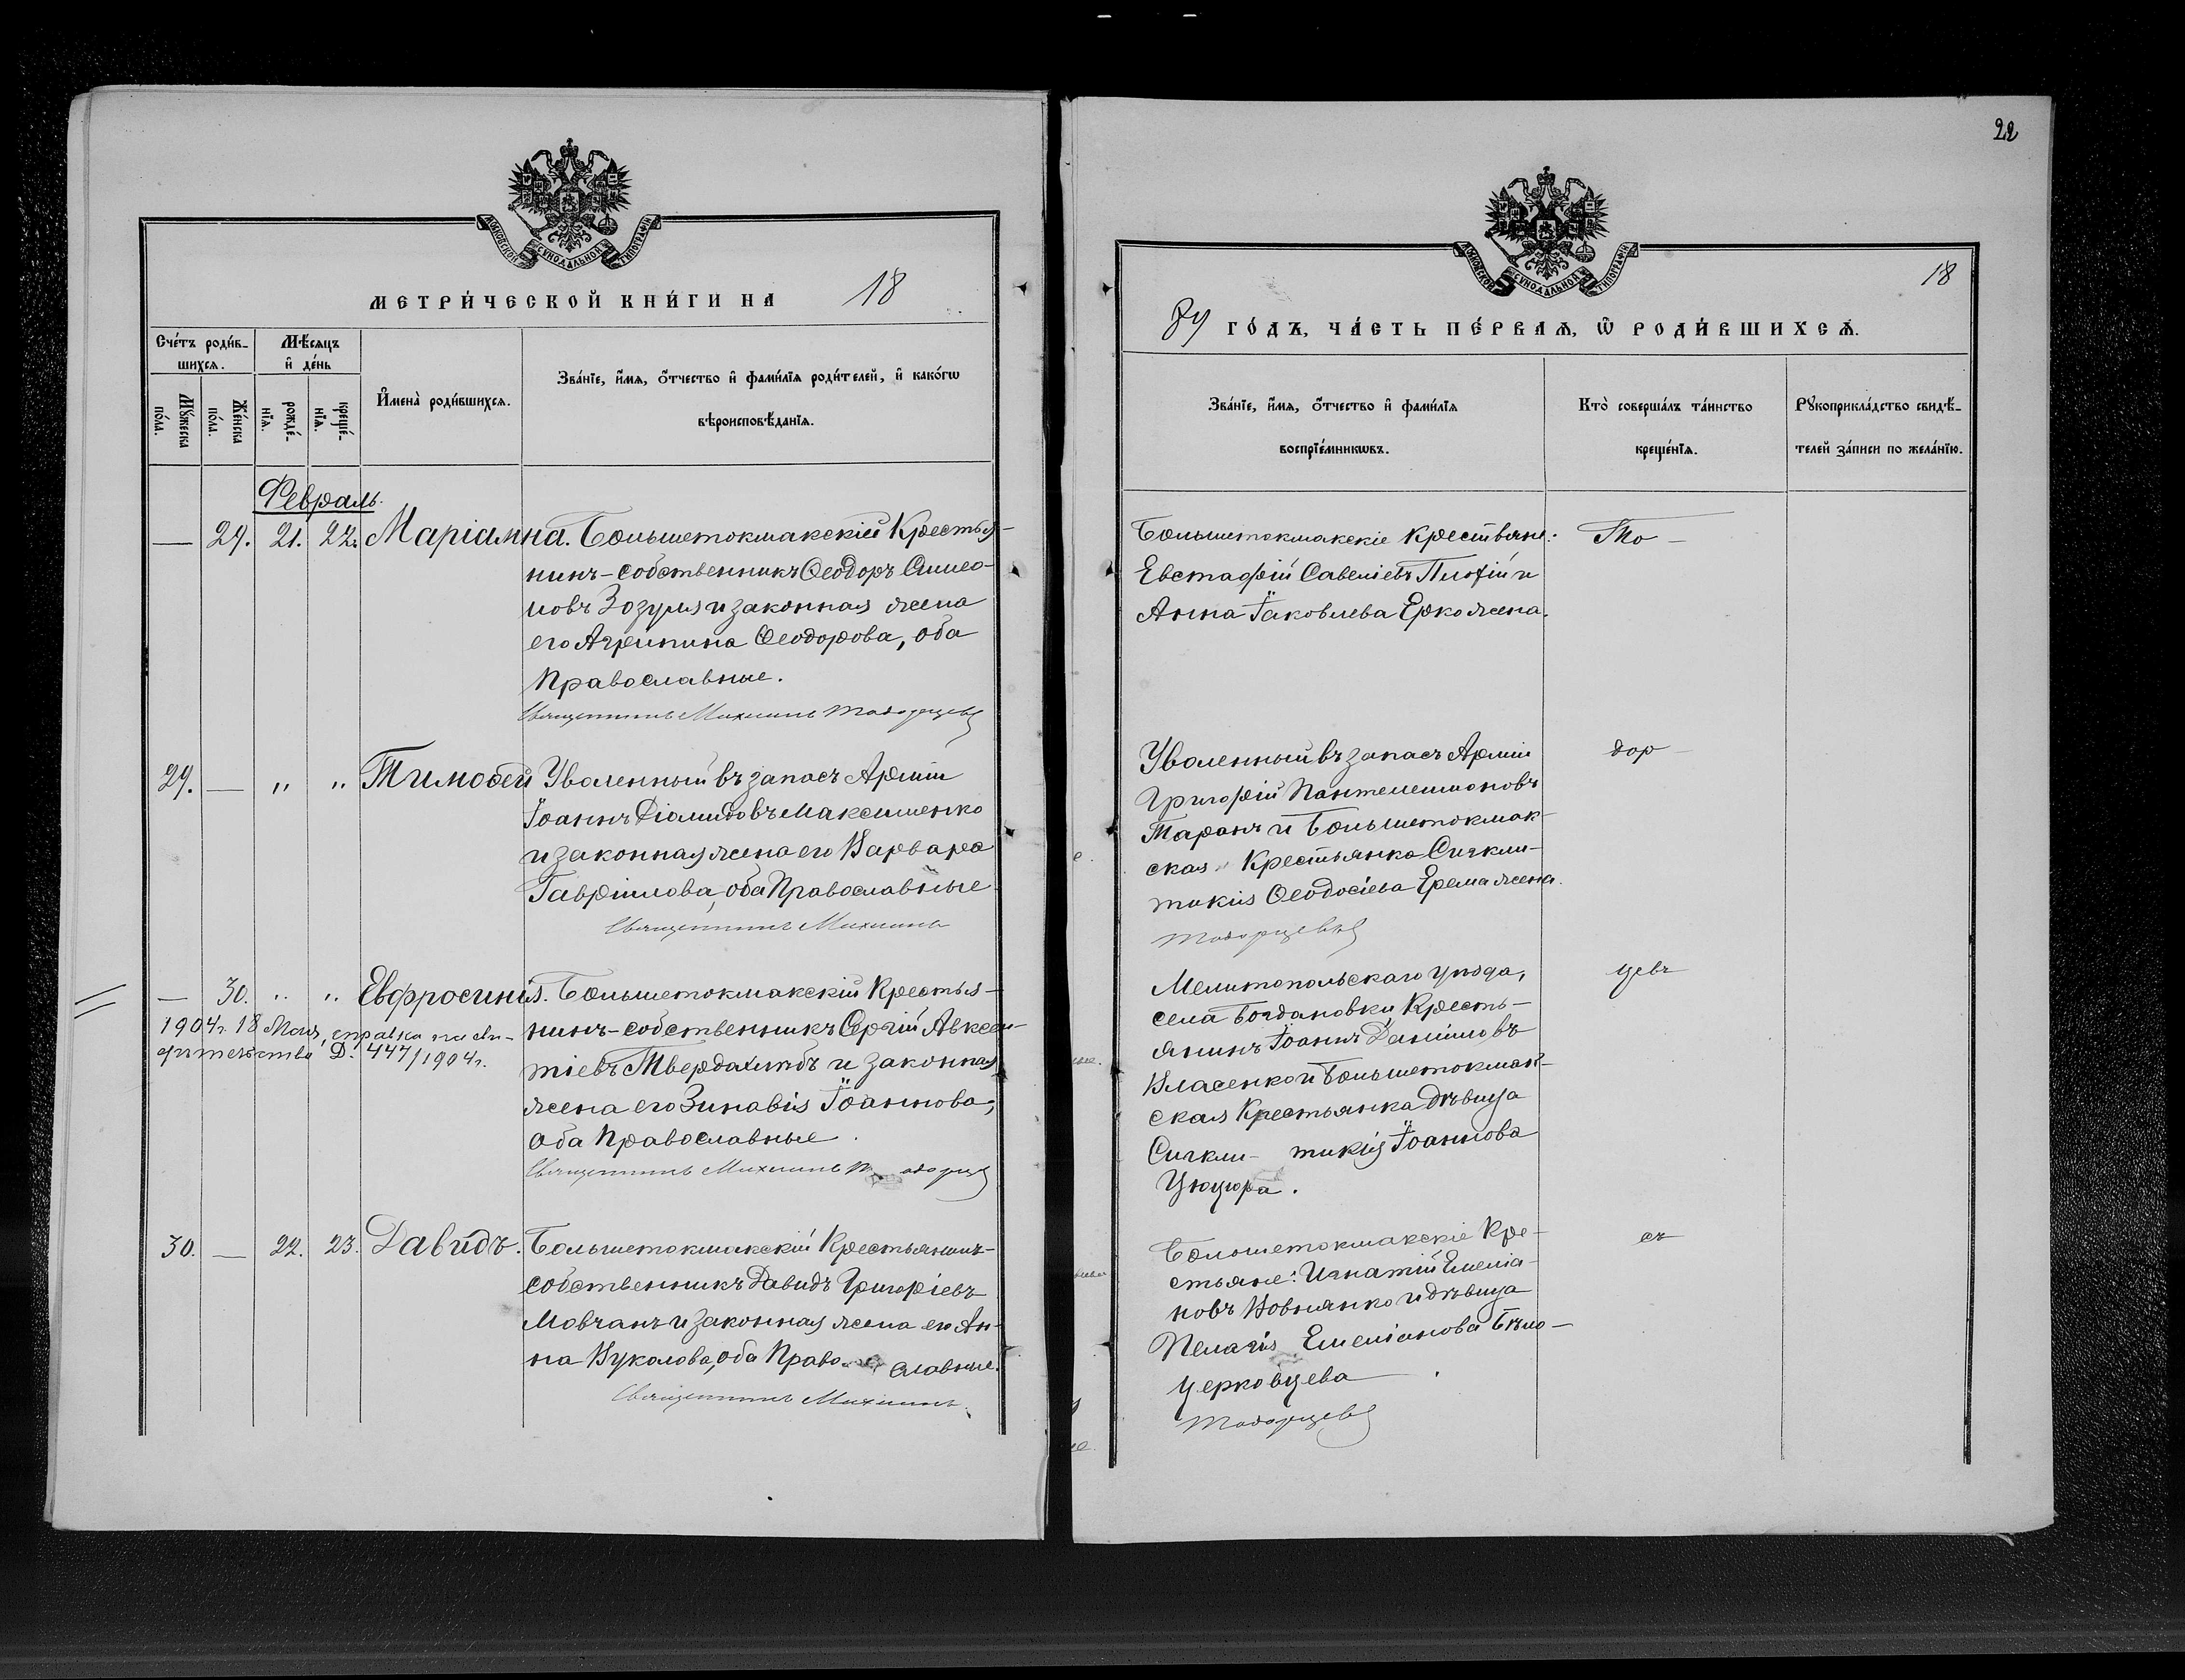 МОСКОВСКОЙ СѴНОДАЛЬНОЙ ТИПОГРАФІИ
МЕТРИ́ЧЕСКОЙ КНИ́ГИ НА 18
Сче́тъ роди́в-
шихсѧ.
Мѣ́сѧцъ
и҆ де́нь
Мꙋ́жеска
по́ла.
Же́нска
по́ла.
рожде́-
нїѧ.
креще́-
нїѧ.
И҆мена̀ роди́вшихсѧ.
Зва́нїе, и҆́мѧ, ѻ҆́тчество и҆ фами́лїѧ роди́телей, и҆ како́гѡ
вѣроисповѣ́данїѧ.
Февраль.
— 29. 21. 22. Маріамна. Большетокмакскій Крестья-
нинъ-собственникъ Ѳеодоръ Симео-
новъ Зозуля и законная жена
его Агрипина Ѳеодорова, оба
Православные.
Священникъ Михаилъ
29. — " " Тимоѳей Уволенный въ запасъ Арміи
Іоаннъ Діомидовъ Максименко
и законная жена его Варвара
Гавріилова, оба Православные
Священникъ Михаилъ
— 30. " " Евфросинія. Большетокмакскій Крестья-
1904г. 18 Мая, справка на сви-
дѣтельства Д. 447/1904г.
нинъ-собственникъ Сергій Авксен-
тіевъ Твердохлѣбъ и законная
жена его Зиновія Іоаннова,
оба Православные.
Священникъ Михаилъ
30. — 22. 23. Давидъ. Большетокмакскій Крестьянинъ-
собственникъ Давидъ Григоріевъ
Мовчанъ и законная жена его Ан-
на Вуколова, оба Право- славные.
Священникъ Михаилъ
22
МОСКОВСКОЙ СѴНОДАЛЬНОЙ ТИПОГРАФІИ
18
ГО́ДЪ, ЧА́СТЬ ПЕ́РВАѦ, Ѽ РОДИ́ВШИХСѦ.
Зва́нїе, и҆́мѧ, ѻ҆́тчество и҆ фами́лїѧ
воспрїе́мникѡвъ.
Кто̀ соверша́лъ та́инство
креще́нїѧ.
Рꙋкоприкла́дство свидѣ́-
телей за́писи по жела́нїю.
Большетокмакскіе Крестьяне:
Евстафій Савеліевъ Плохій и
Анна Іаковлева Ерко жена.
То-
Уволенный въ запасъ Арміи
Григорій Пантелеимоновъ
Таранъ и Большетокмак-
ская Крестьянка Сигкли-
тикія Ѳеодосіева Ерема жена.
дор-
Мелитопольскаго уѣзда,
села Богдановки Кресть-
янинъ Іоаннъ Даніиловъ
Власенко и Большетокмак-
ская Крестьянка дѣвица
Сигкли- тикія Іоаннова
Цюцюра.
цевъ
Большетокмакскіе Кре-
стьяне: Игнатій Емеліа-
новъ Вовнянко и дѣвица
Пелагія Емеліанова Бѣло-
церковцева
съ